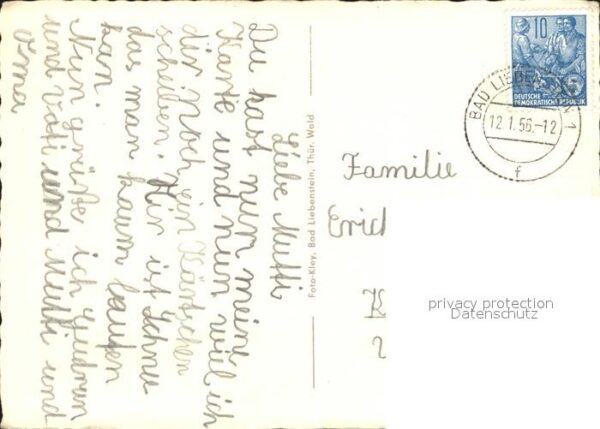 Liebe Mutti
Du hast nun meine
Karte und nun will ich
dir noch ein Kärtchen
scheiben. Hir ist Schne
das man kaum laufen
kan.
Nun grüße ich gudrun
und Vati und Mutti und
Oma
Foto-Kley, Bad Liebenstein, Thür. Wald
10
DEUTSCHE
DEMOKRATISCHE REPUBLIK
BAD LIEBENSTEIN 1
12.1.56.-12
f
Familie
Erich
privacy protection
Datenschutz